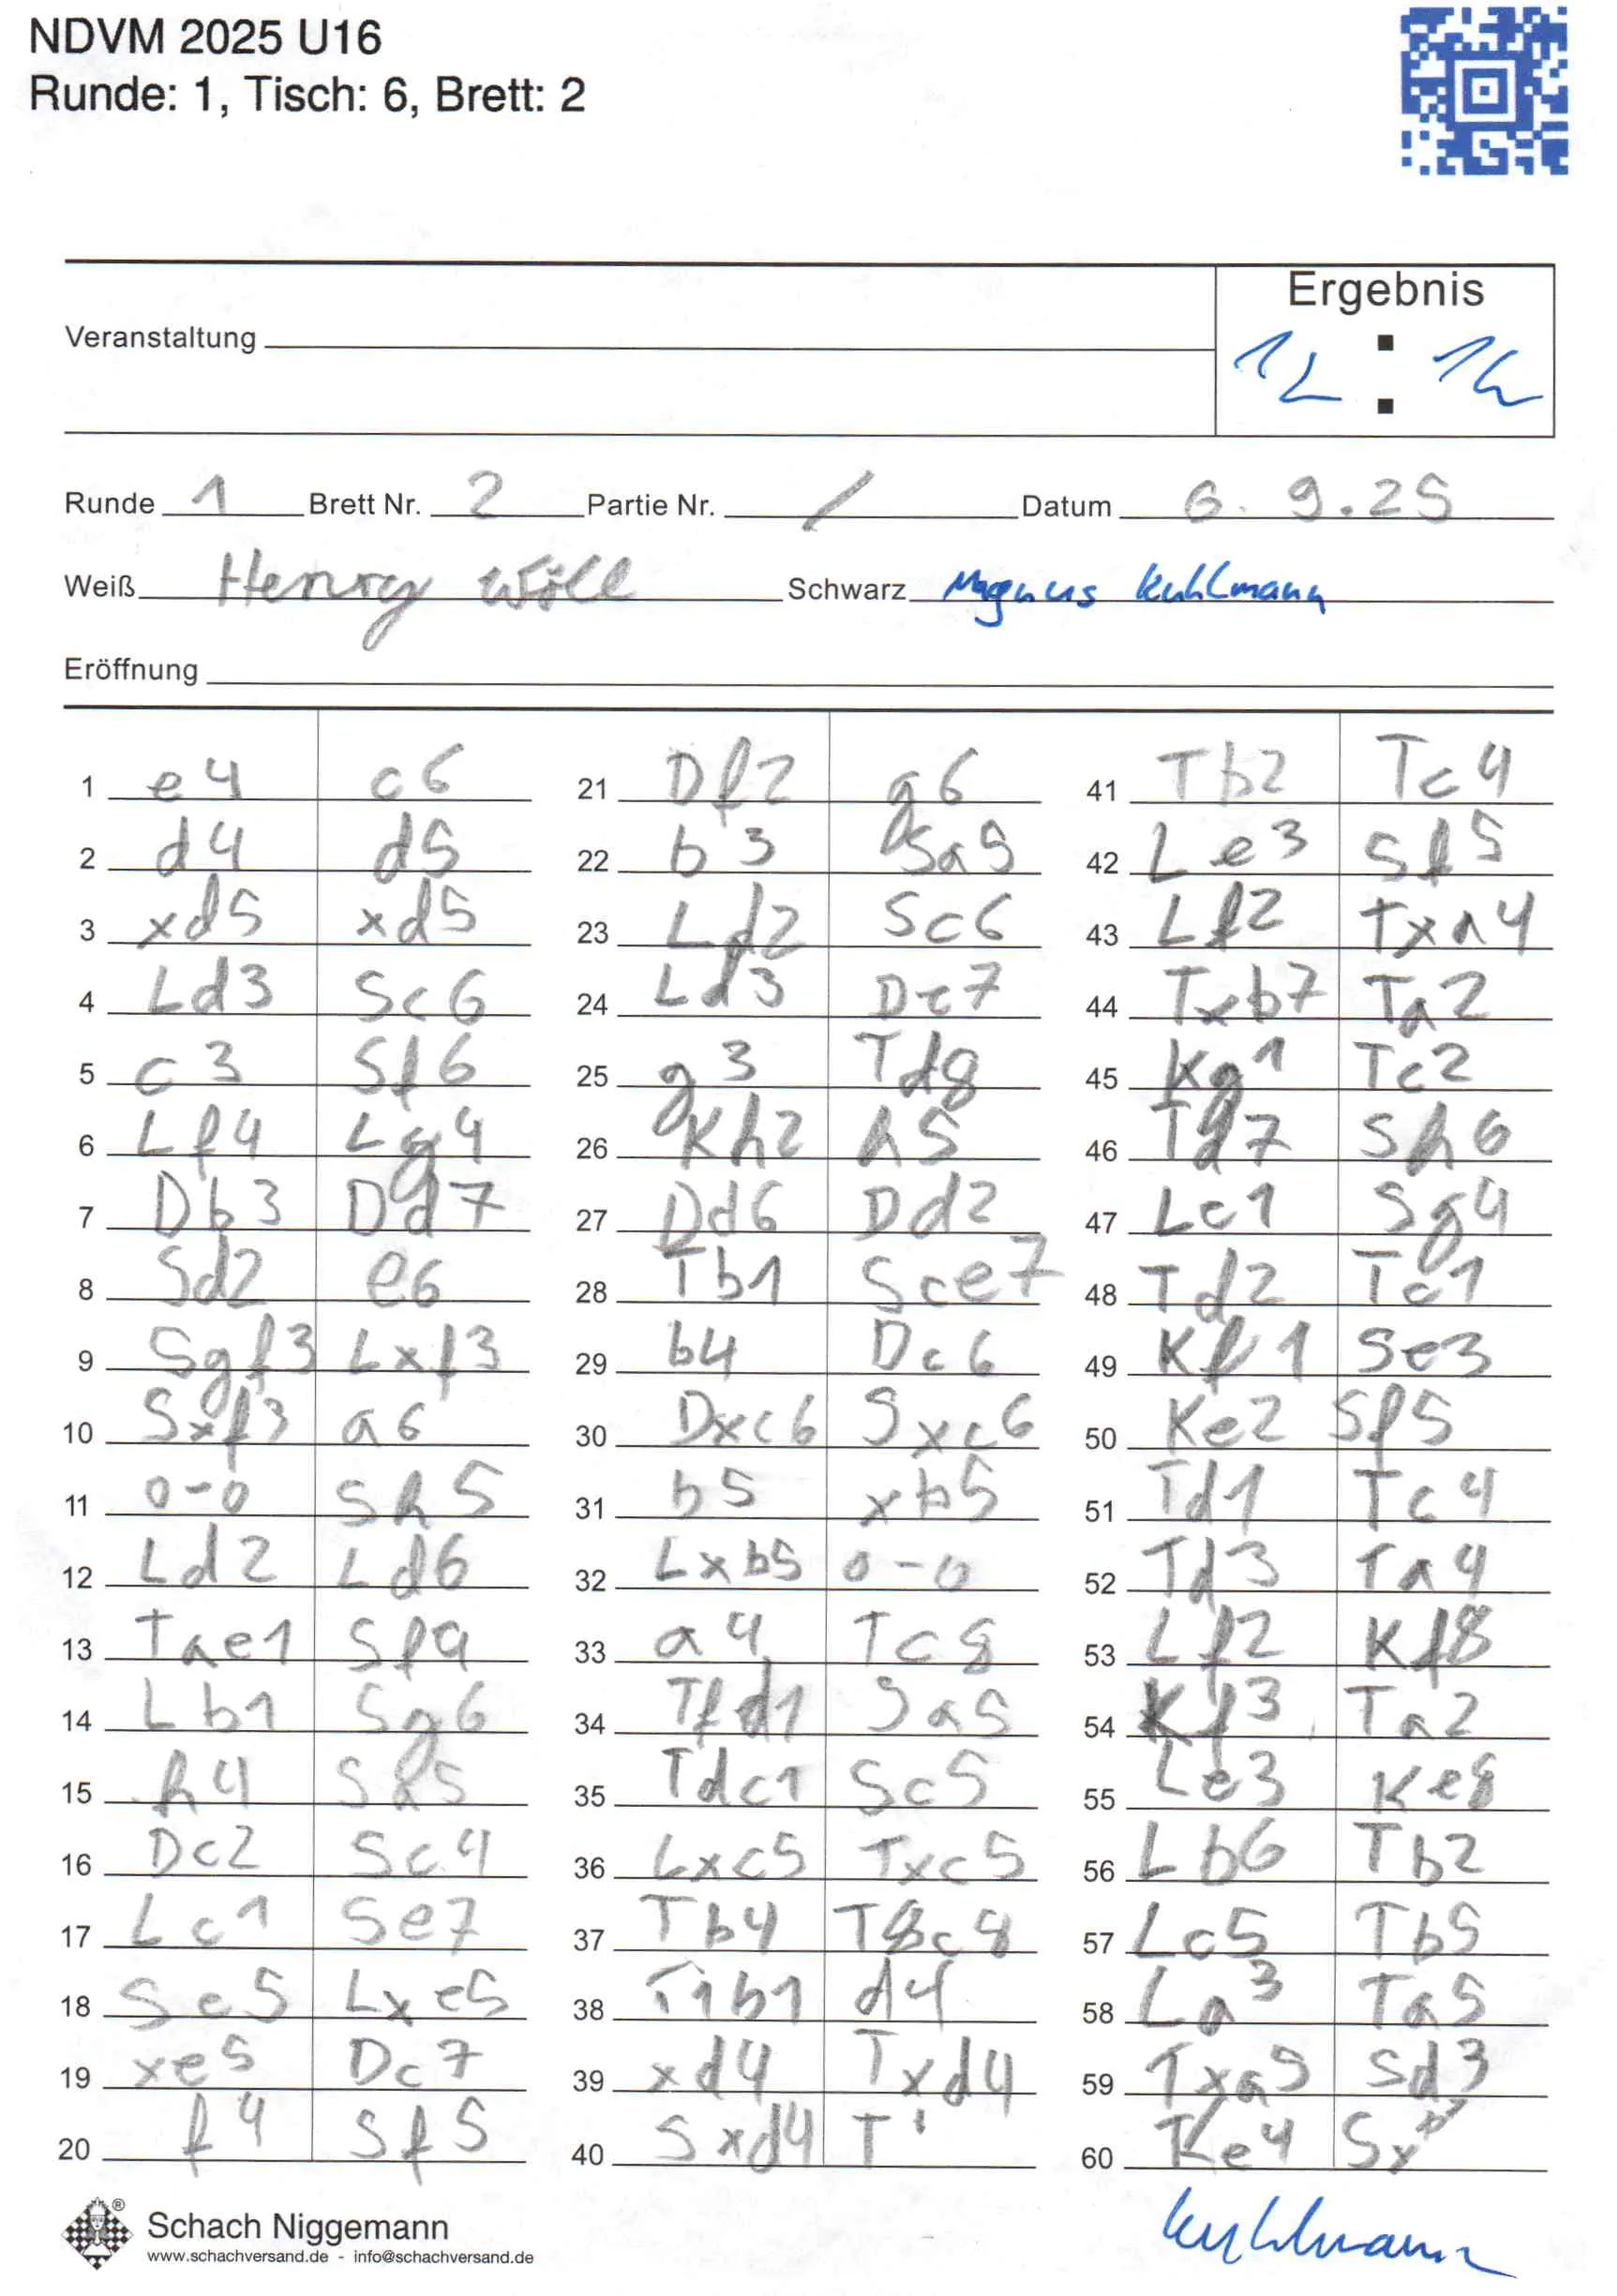 NDVM 2025 U16
Runde: 1, Tisch: 6, Brett: 2
Ergebnis
Veranstaltung
1/2 : 1/2
Runde 1 Brett Nr. 2 Partie Nr. / Datum 6.9.25
Weiß Henry Wöll Schwarz Magnus Kuhlmann
Eröffnung
1 e4 c6
2 d4 d5
3 xd5 xd5
4 Ld3 Sc6
5 c3 Sf6
6 Lf4 Lg4
7 Db3 Dd7
8 Sd2 e6
9 Sgf3 Lxf3
10 Sxf3 a6
11 0-0 Sh5
12 Ld2 Ld6
13 Tae1 Sf4
14 Lb1 Sg6
15 h4 Sa5
16 Dc2 Sc4
17 Lc1 Se7
18 Se5 Lxe5
19 xe5 Dc7
20 f4 Sf5
21 Df2 g6
22 b3 Sa5
23 Ld2 Sc6
24 Ld3 De7
25 g3 Td8
26 Kh2 h5
27 Dd6 Dd2
28 Tb1 Sce7
29 b4 Dc6
30 Dxc6 Sxc6
31 b5 xb5
32 Lxb5 0-0
33 a4 Tc8
34 Tfd1 Sa5
35 Tdc1 Sc5
36 Lxc5 Txc5
37 Tb4 T8c8
38 T1b1 d4
39 xd4 Txd4
40 Sxd4 T
41 Tb2 Tc4
42 Le3 Sf5
43 Lf2 Txa4
44 Txb7 Ta2
45 Kg1 Tc2
46 Td7 Sh6
47 Lc1 Sg4
48 Td2 Tc1
49 Kf1 Se3
50 Ke2 Sf5
51 Td1 Tc4
52 Td3 Ta4
53 Lf2 Kf8
54 Kf3 Ta2
55 Le3 Ke8
56 Lb6 Tb2
57 Lc5 Tb5
58 La3 Ta5
59 Txa5 Sd3
60 Ke4 Sx
Schach Niggemann
www.schachversand.de - info@schachversand.de
Kuhlmann